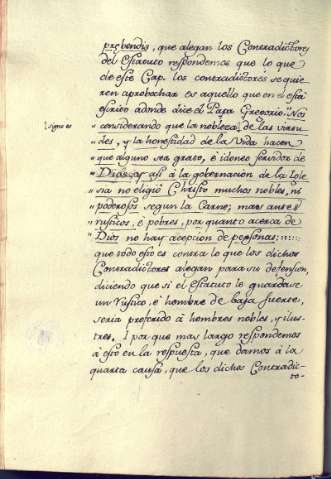 prebendis, que alegan los Contradictores
del Estatuto respondemos que lo que
de este Cap. los contradictores se quie
ren aprobechar es aquello que en el està
escrito adonde dice el Papa Gregorio: Nos
" considerando que la nobleza de las virtu
" des, y la honestidad de la Vida hacen
" que alguno sea grato, è idoneo servidor de
" Dios, y asi à la gobernacion de la Igle
" sia no eligiò Christo muchos nobles, ni
" poderosos segun la Carne; mas antes
" rusticos, è pobres, por quanto acerca de
" Dios no hay acepcion de personas:
que todo esto es contra lo que los dichos
Contradictores alegan para su defension,
diciendo que si el Estatuto se guardase
un rustico, è hombre de baja suerte,
seria preferido à hombres nobles, y ilus-
tres, I por que mas largo respondemos
à esto en la respuesta, que damos à la
quarta causa, que los dichos Contradic-
to-